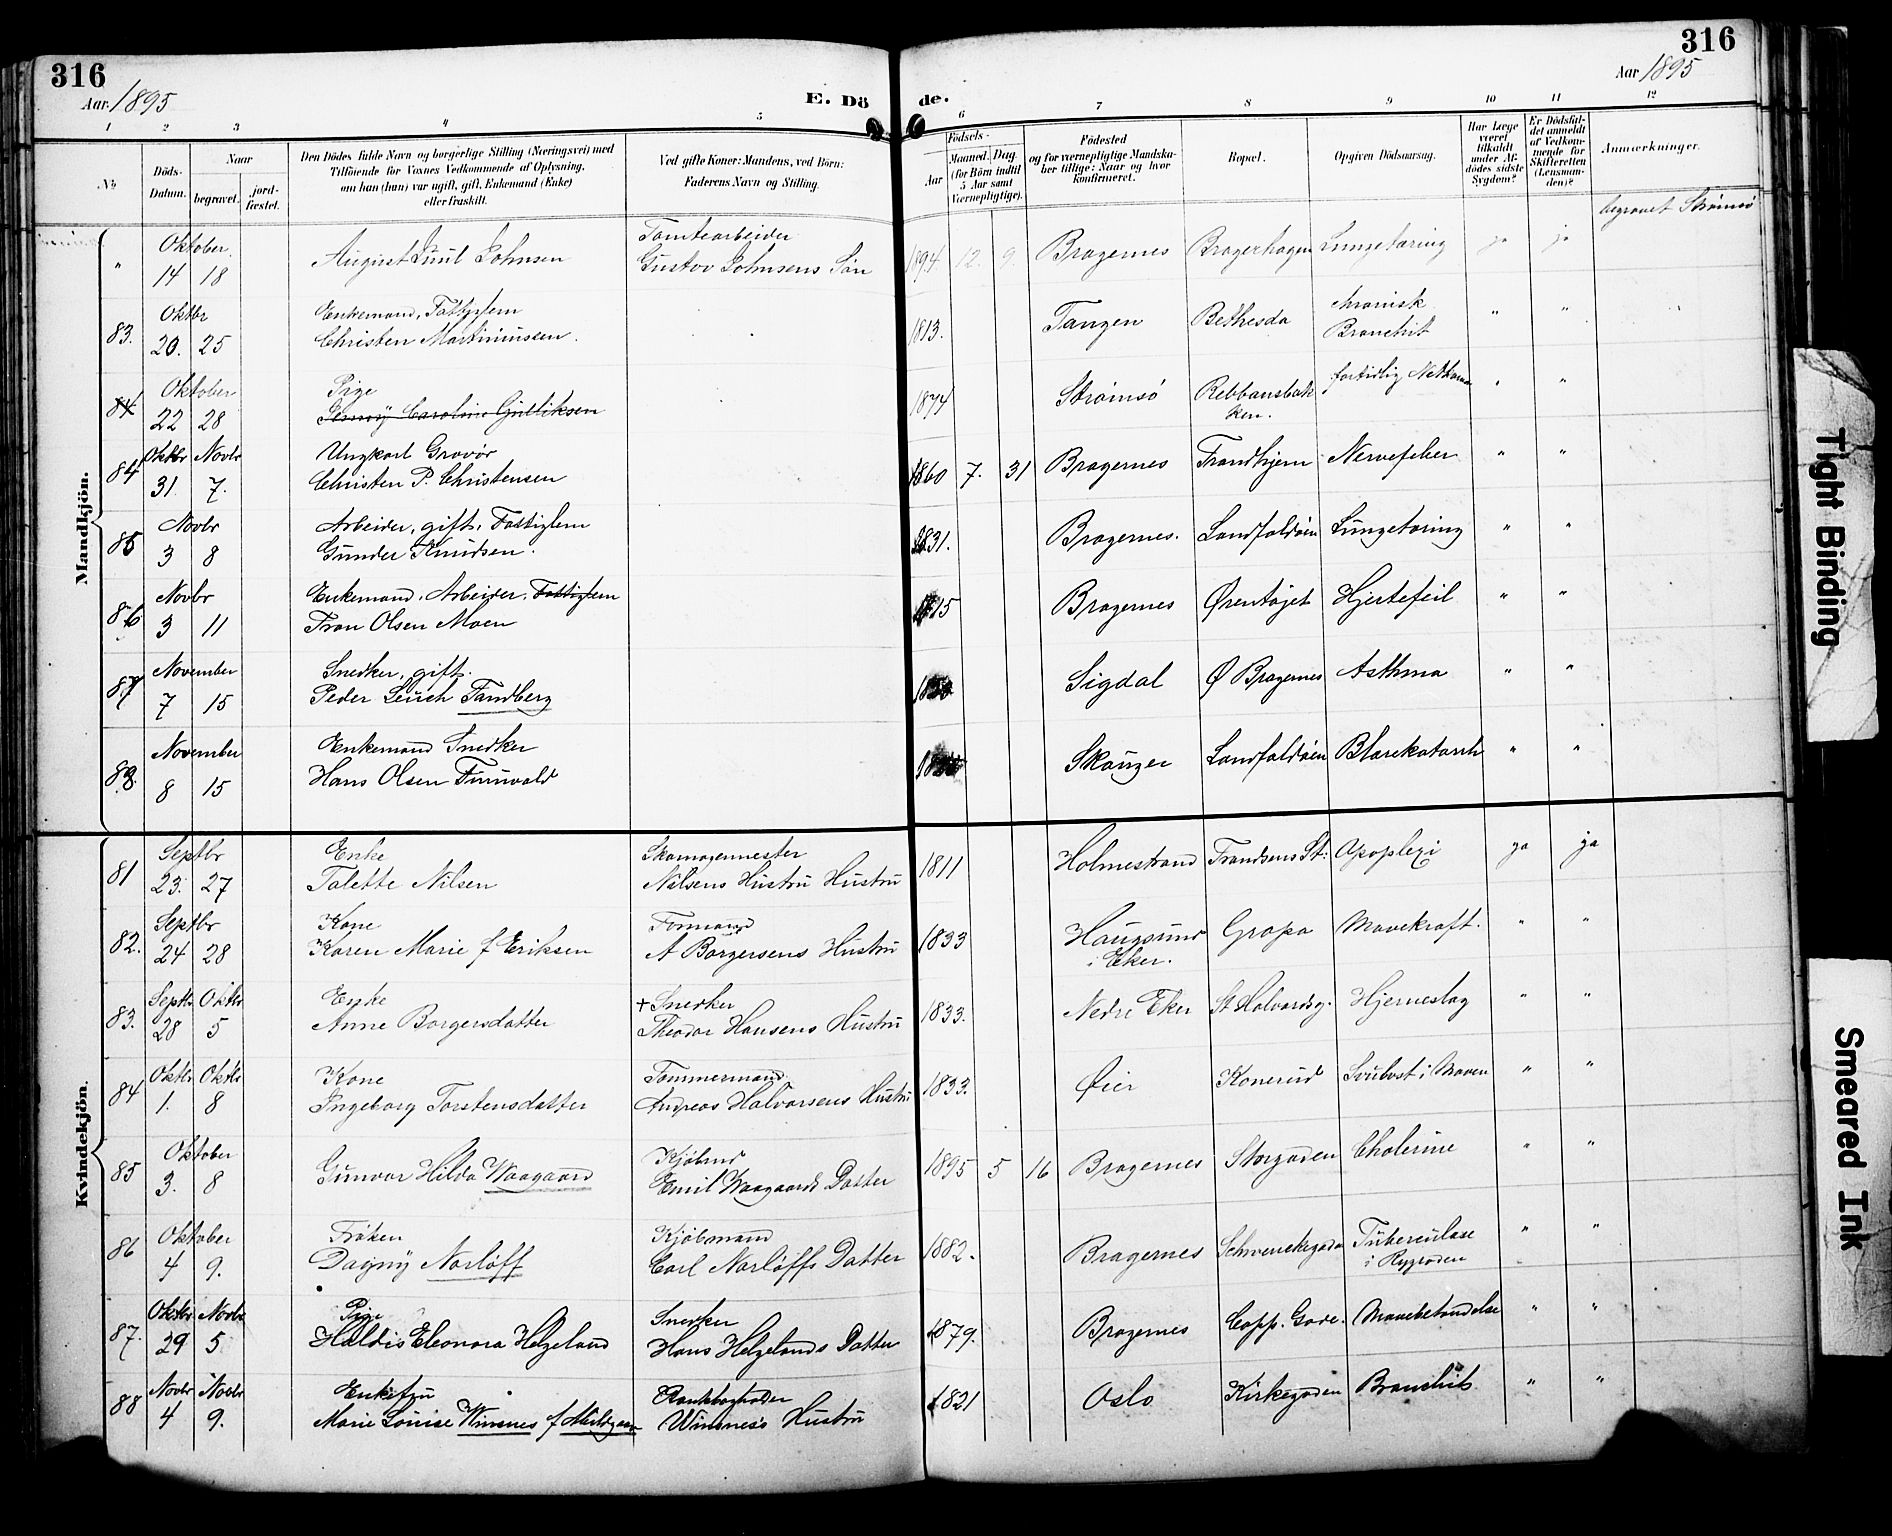 316
Aar 1895
E. Dö
de.
316
Aar 1895
1 2 3 4 5 6 7 8 9 10 11 12
No
Döds-Datum.
Naar
begravet.
jord-fæstet.
Den Dödes fulde Navn og borgerlige Stilling (Næringsvei) med
Tilföiende for Voxnes Vedkommende af Oplysning,
om han (hun) var ugift, gift, Enkemand (Enke)
eller fraskilt.
Ved gifte Koner: Mandens, ved Börn:
Faderens Navn og Stilling.
Födsels-
Aar
Maaned. Dag.
(for Börn indtil
5 Aar samt
Værnepligtige).
Födested
og for værnepligtige Mandska-
ber tillige: Naar og hvor
konfirmeret.
Bopæl.
Opgiven Dödsaarsag.
Har Læge
været
tilkaldt
under Af-
dödes sidste
Sygdom?
Er Dödsfal-
det anmeldt
af Vedkom-
mende for
Skifteretten
(Lensman-
den)?
Anmærkninger.
begravet Strømsø
Mandkjön.
" Oktober 14 18 August Juul Johnsen
Tomtearbeider
Gustav Johnsens Søn 1894 12. 9. Bragernes Bragerhagen Lungetæring ja ja
83. Oktbr 20. 25 Enkemand, Fattiglem
Christen Martiniussen. 1813. Tangen Bethesda chronisk
Bronchit " "
84 Oktober 22 28 Pige
Jenny Caroline Gulliksen 1874 Strømsø Rebbansbak
ken. " "
84 Oktbr Novbr 31. 7. Ungkarl Grovør
Christen P. Christensen 1860 7. 31 Bragernes Trondhjem Nervefeber " "
85 Novbr 3 8 Arbeider, gift, Fattiglem
Gunder Knudsen. 1831. Bragernes. Landfaldøen Lungetæring " "
86 Novbr 3 11 Enkemand, Arbeider, Fattiglem
Tron Olsen Moen 1815 Bragernes Ørentøjet Hjertefeil " "
87 November 7 15 Snedker, gift.
Peder Leuch Tandberg Sigdal Ø Bragernes Asthma " "
88 November 8 15 Enkemand Snedker
Hans Olsen Skouger Landfaldøen Blærekatarrh " "
Kvindekjön.
81 Septbr 23. 27 Enke
Talette Nilsen
Skomagermester
Nilsens Hustru Hustru 1811 Holmestrand Frandsens St: Apoplexi ja ja
82. Septbr 24 28 Kone
Karen Marie f Eriksen
Formand
A Borgersens Hustru 1833 Haugsund
i Eker. Gropa Mavekræft. " "
83. Septbr Oktbr 28 5 Enke
Anne Borgersdatter
+ Snedker
Theodor Hansens Hustru 1833. Nedre Eker St Halvardsg. Hjerneslag " "
84 Oktbr Oktbr 1. 8 Kone
Ingeborg Torstensdatter
Tømmermand
Andreas Halvorsens Hustru 1833. Øier Konerud Svulvst i Maven " "
85 Oktober 3. 8 Gunvor Hilda Waagaard
Kjøbmd
Emil Waagaards Datter 1895 5 16 Bragernes Storgaden Cholerine " "
86 Oktober 4 9. Frøken
Dagny Norløff
Kjøbmand
Carl Norløffs Datter 1882. Bragernes Schwenckegaden Tuberculose
i Rygraden " "
87. Oktbr Novbr 29 5 Pige
Haldis Eleonora Helgeland
Snedker
Hans Helgelands Datter 1879. Bragernes Copp. Gade. Mavebetændelse " "
88 Novbr Novbr 4 9. Enkefru
Marie Louise Winsnes f
Winsnes's Hustru 1821 Oslo Kirkegaden Bronchit " "
Tight Binding
Smeared Ink